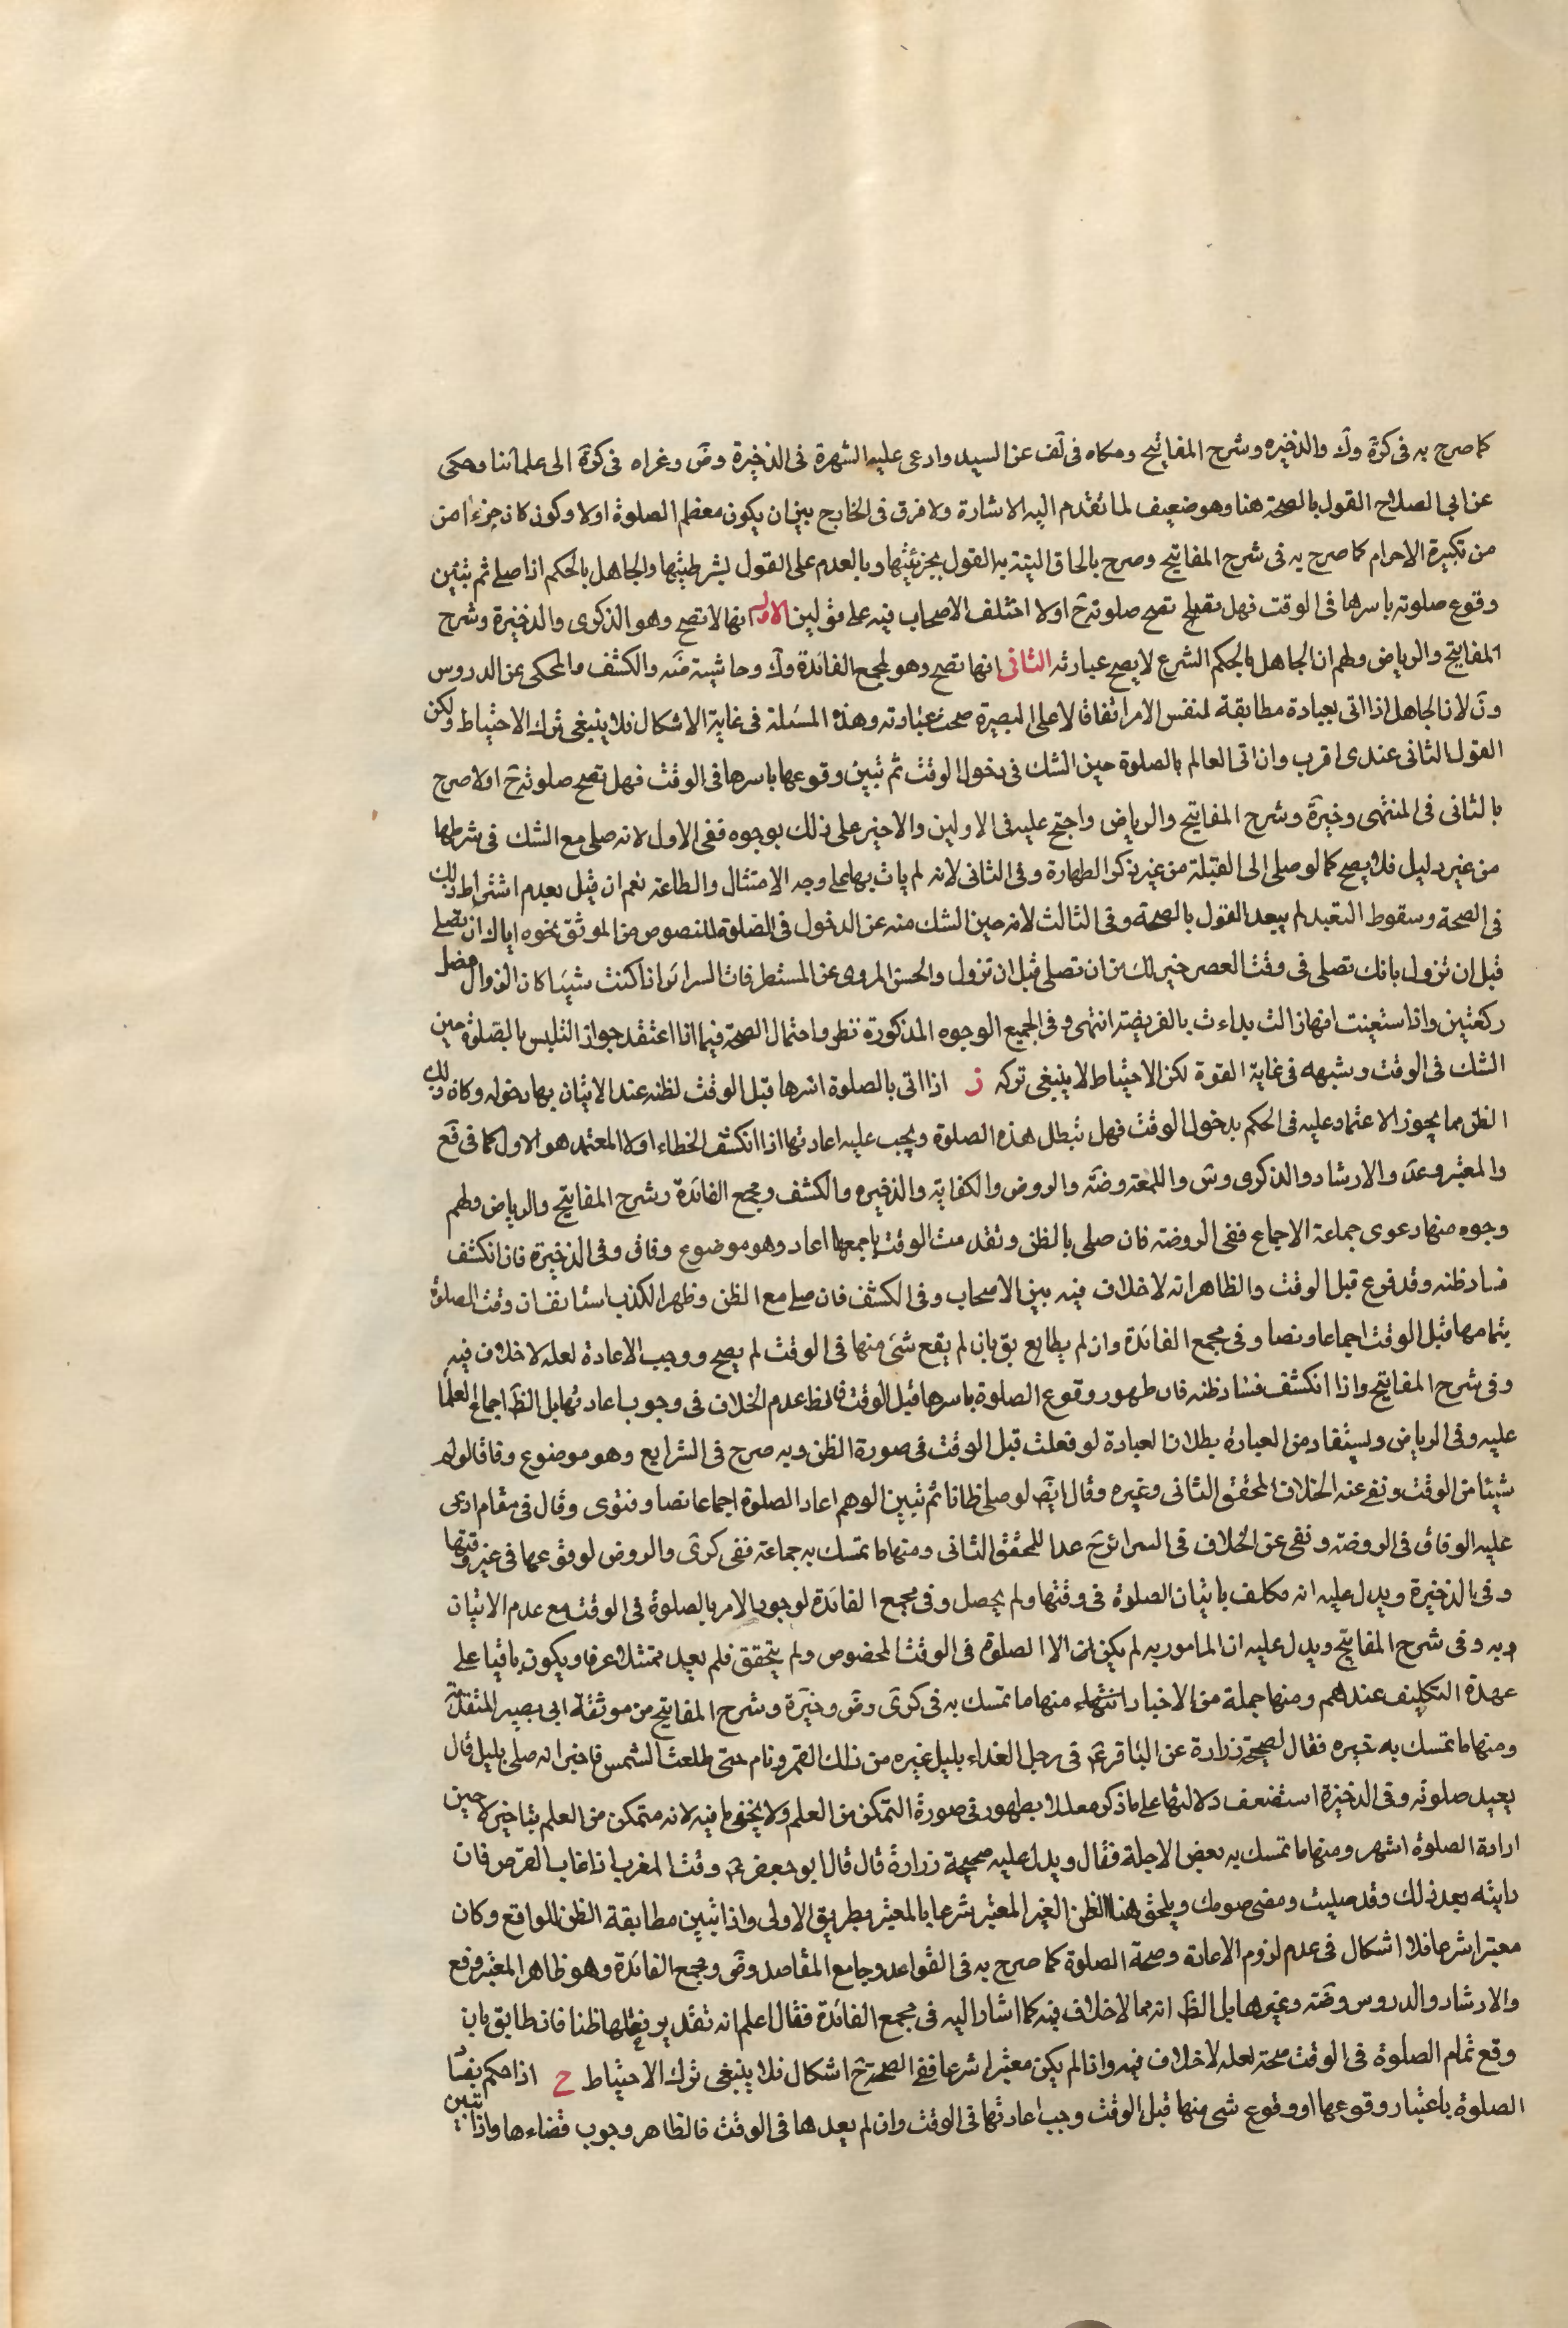 كما صرح به فى كرة وك والذخيره وشرح المفاتيح وحكاه فى لف عن السيد وادعى عليه الشهرة فى الذخيرة وض وغراه فى كرة الى علمائنا وحكى
عن ابى الصلاح القول بالصحة هنا وهو ضعيف لما تقدم اليه الاشارة ولا فرق فى الخارج بين ان يكون معظم الصلوة اولا وكون كان جزءا من
من تكبيرة الاحرام كما صرح به فى شرح المفاتيح وصرح بالحاق النية به القول بجزئيتها وبالعدم على القول بشرطيتها والجاهل بالحكم اذا صلى ثم تبين
وقوع صلوته باسرها فى الوقت فهل تصح صلوته ح اولا اختلف الاصحاب فيه على قولين الاول انها لا تصح وهو الذكرى والذخيرة وشرح
المفاتيح والرياض ولهم ان الجاهل بالحكم الشرع لا يصح عبارته الثانى انها تصح وهو لمجمع الفائدة وك وحاشية ضه والكشف والمحكى عن الدروس
ون لان الجاهل اذا اتى بعبادة مطابقة لنفس الامر اتفاقا لا على البصيرة صحت عبادته وهذه المسئلة فى غاية الاشكال فلا ينبغى ترك الاحتياط ولكن
القول الثانى عندى اقرب وان اتى العالم بالصلوة حين الشك فى دخول الوقت ثم تبين وقوعها باسرها فى الوقت فهل تصح صلوته ح اولا صرح
بالثانى فى المنتهى وخيرة وشرح المفاتيح والرياض واحتج عليه فى الاولين والاخير على ذلك بوجوه ففى الاول لانه صلى مع الشك فى شرطها
من غير دليل فلا يصح كما لو صلى الى القبلة من غير ذكر الطهارة وفى الثانى لانه لم يات بها على وجه الامتثال والطاعة نعم ان قيل بعدم اشتراط ذلك
فى الصحة وسقوط التعبد لم يبعد القول بالصحة وفى الثالث لانه حين الشك منه عن الدخول فى الصلوة للنصوص من الموثق بنحوه اياك ان تصلى
قبل ان تزول بانك تصلى فى وقت العصر خير لك من ان تصلى قبل ان تزول والحسن المروى عن المستطرفات السرائر اذا كنت شيئا كان الزوال فصل
ركعتين واذا استيقنت انها زالت بداءت بالفريضة انتهى وفى الجميع الوجوه المذكورة نظر واحتمال الصحة فيما اذا اعتقد جواز التلبس بالصلوة حين
الشك فى الوقت وشبهه فى غاية القوة لكن الاحتياط لا ينبغى تركه ز اذا اتى بالصلوة اسرها قبل الوقت لظنه عند الاتيان بها دخوله وكان ذلك
الظن مما يجوز الاعتماد عليه فى الحكم بدخول الوقت فهل تبطل هذه الصلوة ويجب عليه اعادتها اذا انكشف الخطاء اولا المعتمد هو الاول كما فى قع
والمعتبر وعد والارشاد والذكرى وس واللمعة وضه والروض والكفاية والذخيره والكشف ومجمع الفائدة وشرح المفاتيح والرياض ولهم
وجوه منها دعوى جماعة الاجماع ففى الروضة فان صلى بالظن وتقدمت الوقت باجمعها اعاد وهو موضوع وفاق وفى الذخيرة فان انكشف
فساد ظنه وقد فرغ قبل الوقت والظاهر انه لا خلاف فيه بين الاصحاب وفى الكشف فان صلى مع الظن وظهر الكذب استانف ان وقت الصلوة
بتمامها قبل الوقت اجماعا ونصا وفى مجمع الفائدة وان لم يطابق بان لم يقع شئ منها فى الوقت لم يصح ووجب الاعادة لعله لا خلاف فيه
وفى شرح المفاتيح واذا انكشف فساد ظنه فان ظهور وقوع الصلوة باسرها قبل الوقت فالظ عدم الخلاف فى وجوب اعادتها بل الظ اجماع العلما
عليه وفى الرياض ويستفاد من العبارة بطلان العبادة لو فعلت قبل الوقت فى صورة الظن وبه صرح فى الشرايع وهو موضوع وفاقا لو لم
شيئا من الوقت ونفى عنه الخلاف المحقق الثانى وغيره وقال ايض لو صلى ظانا ثم تبين الوهم اعاد الصلوة اجماعا نصا وفتوى وقال فى مقام ادعى
عليه الوفاق فى الروضة ونفى عن الخلاف فى السرائر ح عدا للمحقق الثانى ومنها ما تمسك به جماعة ففى كرى والروض لوقوعها فى غير وقتها
وفى بالذخيرة ويدل عليه انه مكلف باتيان الصلوة فى وقتها ولم يحصل وفى مجمع الفائدة لوجوب الامر بالصلوة فى الوقت مع عدم الاتيان
وبه وفى شرح المفاتيح ويدل عليه ان المامور به لم يكن الا الصلوة فى الوقت المخصوص ولم يتحقق فلم يعد ممتثلا عرفا ويكون باقيا على
عهدة التكليف عندهم ومنها جملة من الاخبار انتهى منها ما تمسك به فى كرى وض وخيرة وشرح المفاتيح من موثقة ابى بصير المتقدمة
ومنها ما تمسك به خيره فقال لصحيحة زرارة عن الباقر ع فى رجل الغداء بليل غيره من ذلك القمر ونام حتى طلعت الشمس فاخبر انه صلى بليل قال
يعيد صلوته وفى الذخيرة استضعف دلالتها على ما ذكر معللا بظهور فى صورة التمكن من العلم ولا يخفى ما فيه لانه متمكن من العلم بتاخير لا حين
ارادة الصلوة اشهر ومنها ما تمسك به بعض الاجلة فقال ويدل عليه صحيحة زرارة قال قال ابو جعفر ع وقت المغرب اذا غاب القرص فان
رايته بعد ذلك وقد صليت ومضى صومك ويلحق هنا الظن الغير المعتبر شرعا بالمعتبر بطريق الاولى واذا تبين مطابقة الظن للواقع وكان
معتبرا شرعا فلا اشكال فى عدم لزوم الاعادة وصحة الصلوة كما صرح به فى القواعد وجامع المقاصد وض ومجمع الفائدة وهو ظاهر المعتبر وقع
والارشاد والدروس وضه وغيرها بل الظ انه مما لا خلاف فيه كما اشار اليه فى مجمع الفائدة فقال اعلم انه تقدير فعلها ظنا فان طابق بان
وقع تمام الصلوة فى الوقت صحته لعله لا خلاف فيه واذا لم يكن معتبرا شرعا ففى الصحة ح اشكال فلا ينبغى ترك الاحتياط ح اذا حكم بفسا
الصلوة باعتبار وقوعها او وقوع شئ منها قبل الوقت وجب اعادتها فى الوقت وان لم يعدها فى الوقت فالظاهر وجوب قضاءها واذا تبين